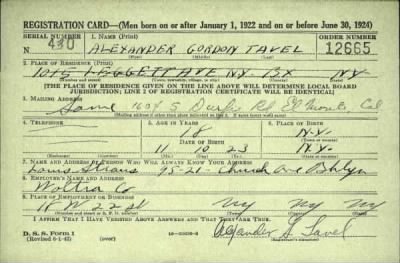 REGISTRATION CARD—(Men born on or after January 1, 1922 and on or before June 30, 1924)
SERIAL NUMBER 1. NAME (Print) ORDER NUMBER
430 ALEXANDER GORDON TAVEL 12665
(First) (Middle) (Last)
2. PLACE OF RESIDENCE (Print)
1015 LEGGETT AVE N.Y. BX N.Y.
[THE PLACE OF RESIDENCE GIVEN ON THE LINE ABOVE WILL DETERMINE LOCAL BOARD
JURISDICTION; LINE 2 OF REGISTRATION CERTIFICATE WILL BE IDENTICAL]
3. MAILING ADDRESS
Same 1604 S Rd El Monte Cal
4. TELEPHONE 5. AGE IN YEARS 6. PLACE OF BIRTH
18 N.Y.
DATE OF BIRTH
11 10 23 N.Y.
7. NAME AND ADDRESS OF PERSON WHO WILL ALWAYS KNOW YOUR ADDRESS
Louis Straus 95-21 Church Ave Bklyn
8. EMPLOYER'S NAME AND ADDRESS
Co
9. PLACE OF EMPLOYMENT OR BUSINESS
18 W 22 st NY NY NY
I AFFIRM THAT I HAVE VERIFIED ABOVE ANSWERS AND THAT THEY ARE TRUE.
D. S. S. Form 1
(Revised 6-1-42)
Alexander G Tavel